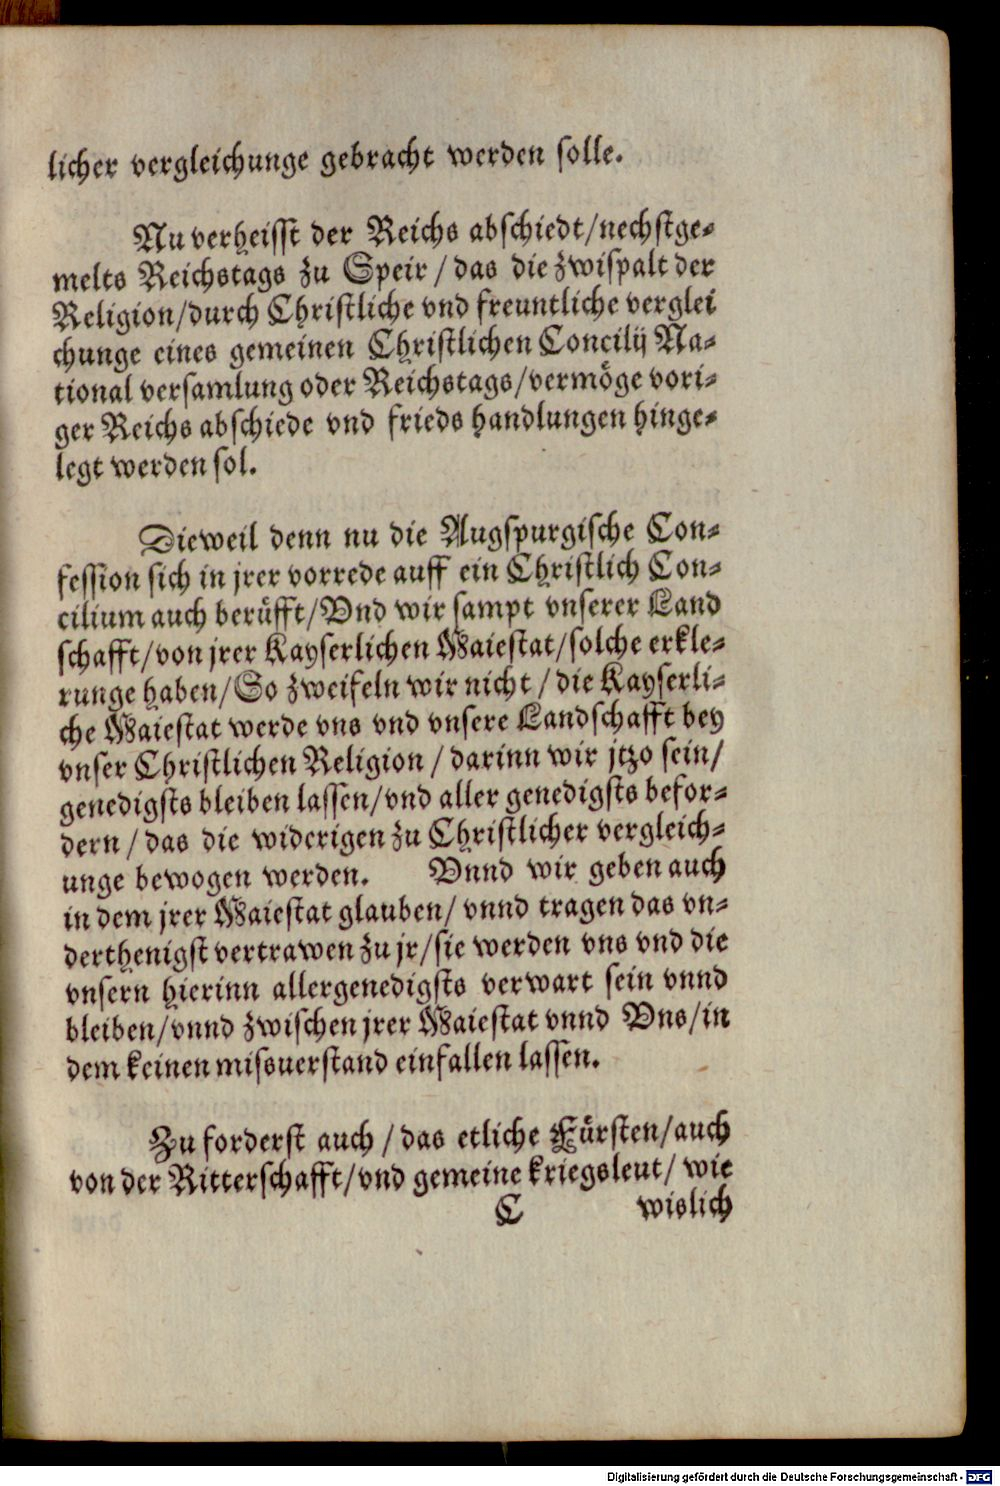 licher vergleichunge gebracht werden solle.
Nu verheisst der Reichs abschiedt/nechstge-
melts Reichstags zu Speir/das die zwispalt der
Religion/durch Christliche vnd freuntliche verglei
chunge eines gemeinen Christlichen Concilij Na-
tional versamlung oder Reichstags/vermöge vori-
ger Reichs abschiede vnd frieds handlungen hinge-
legt werden sol.
Dieweil denn nu die Augspurgische Con-
fession sich in jrer vorrede auff ein Christlich Con-
cilium auch berüfft/Vnd wir sampt vnserer Land
schafft/von jrer Kayserlichen Maiestat/solche erkle-
runge haben/So zweifeln wir nicht/die Kayserli-
che Maiestat werde vns vnd vnsere Landschafft bey
vnser Christlichen Religion/darinn wir jtzo sein/
genedigsts bleiben lassen/vnd aller genedigsts befor-
dern/das die widerigen zu Christlicher vergleich-
unge bewogen werden. Vnnd wir geben auch
in dem jrer Maiestat glauben/vnnd tragen das vn-
derthenigst vertrawen zu jr/sie werden vns vnd die
vnsern hierinn allergenedigsts verwart sein vnnd
bleiben/vnnd zwischen jrer Maiestat vnnd Vns/in
dem keinen missuerstand einfallen lassen.
Zu forderst auch/das etliche Fürsten/auch
von der Ritterschafft/vnd gemeine kriegsleut/wie
C wislich
Digitalisierung gefördert durch die Deutsche Forschungsgemeinschaft - DFG